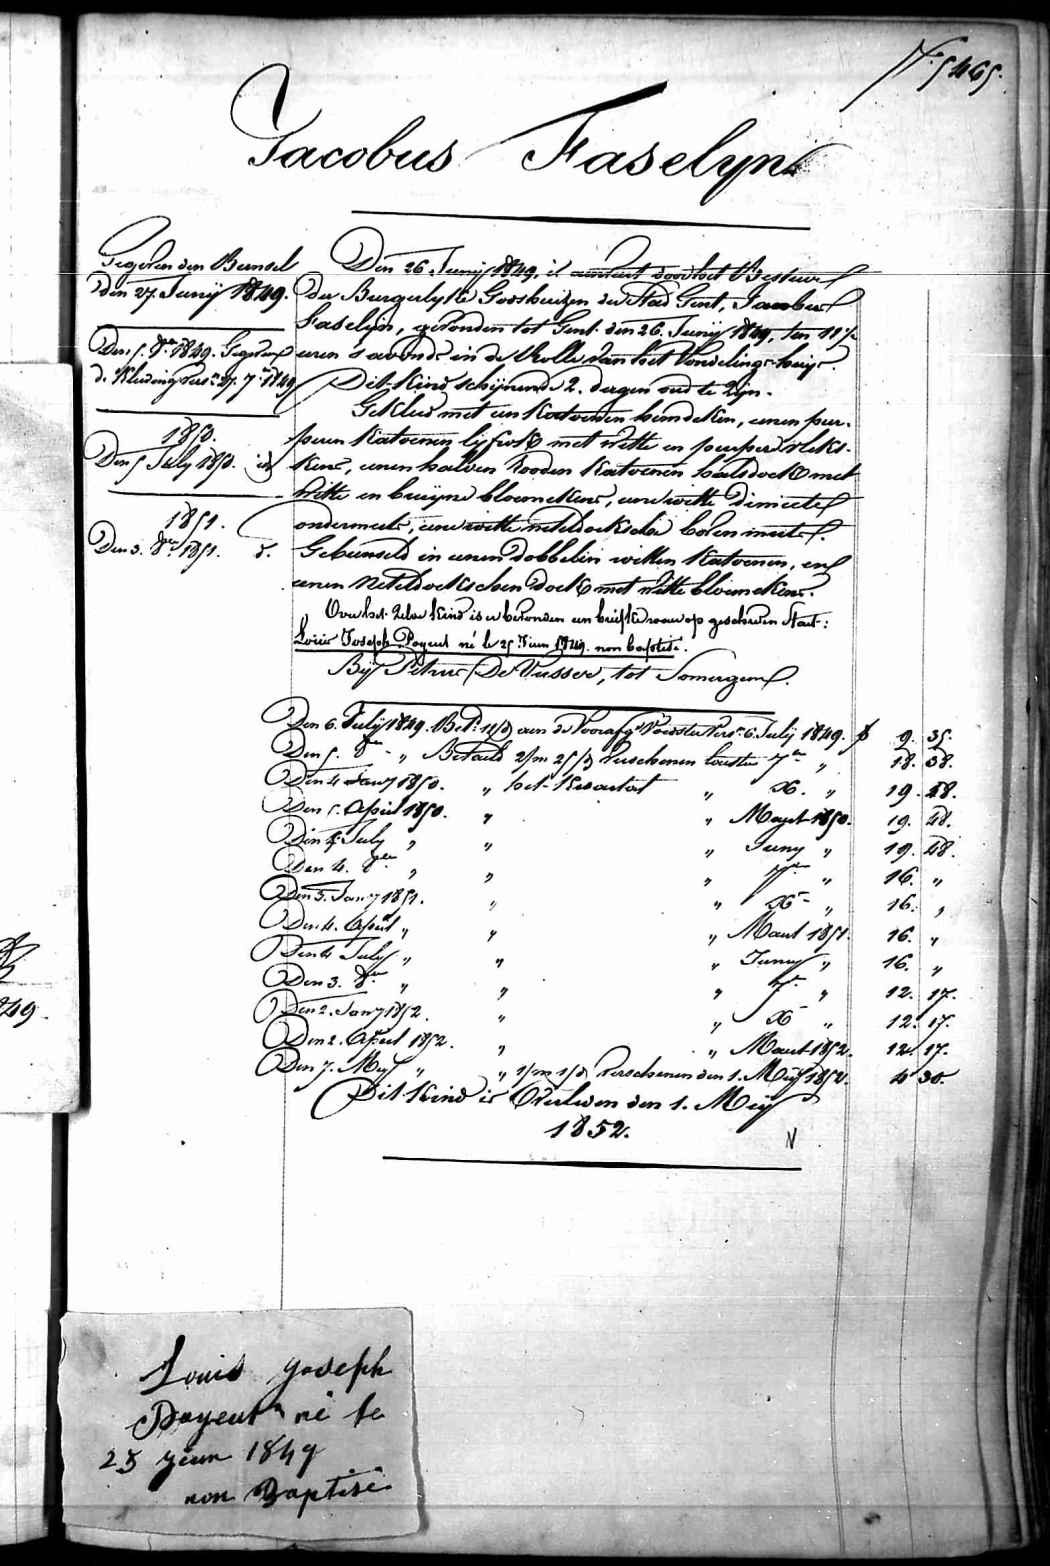 N.º 5465.
Jacobus Faselyn
Gegeven den Bunsel
den 27. Junij 1849.
Den 5. 8.er 1849. Gegeven
d. Kleding Vers.n 27. 7.er 1849
1850.
Den 5 July 1850. id
1851.
Den 3. 8.er 1851. d.
Den 26 Junij 1849, is aenveert door het Bestuer
der Burgerlyke Godshuizen der Stad Gent, Jacobus
Faselijn, gevonden tot Gent den 26. Junij 1849, ten 11 1/2
uren s'avonds in de Rolle van het Vondelings-huijs.
Dit Kind schynende 2. dagen oud te Zijn.
Gekleed met een Katoenen hemdeken, eenen pur-
peren Katoenen lijfrok met witte en purpere vleks-
kens, eenen halven rooden Katoenen halsdoek met
witte en bruijne bloemekens, eene witte Dimitte
ondermuts, eene witte neteldoeksche boven muts.
Gebunseld in eenen dobbelen witten Katoenen, en
eenen Neteldoekschen doek met witte bloemekens.
Over het Zelve Kind is er bevonden een briefke waer op geschreven staet:
Louis Joseph Payeut né le 25 Juin 1849. non baptisé.
Bij Petrus De Vusser, tot Somergem.
Den 6. Julij 1849. Bet.d 11/d aen de Voorafg.e Voedster Vers. 6. Julij 1849. f 9. 35.
Den 5. 8.er " Betaeld 2/m 25/d verschenen loasten 7.er " 18. 38.
Den 4 Jan.y 1850. " het Kwartael " X. " 19. 48.
Den 5. April 1850. " " Maert 1850. 19. 48.
Den 4. July " " " Juny " 19. 48.
Den 4. 8.er " " " 7.er " 16. "
Den 3. Jan.y 1851. " " X.er " 16. "
Den 4. April " " " Maert 1851. 16. "
Den 4 July " " " Juny " 16. "
Den 3. 8.er " " " 7.er " 12. 17.
Den 2. Jan.y 1852. " " X.er " 12. 17.
Den 2. April 1852. " " Maert 1852. 12. 17.
Den 7. Mey " " 1/m 1/d verschenen den 1. Meij 1852. 4 30.
Dit Kind is Overleden den 1. Meij
1852.
849.
Louis Joseph
Payeut né le
25 juin 1849
non Baptisé